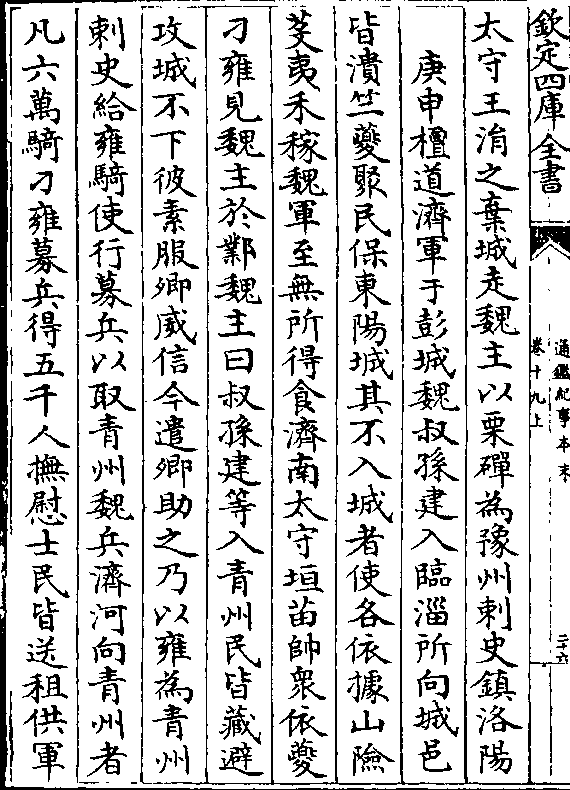 欽定四庫全書
通鑑紀事本末
卷十九上
二十六
太守王涓之棄城走魏主以栗磾為豫州刺史鎮洛陽
庚申檀道濟軍于彭城魏叔孫建入臨淄所向城邑
皆潰竺夔聚民保東陽城其不入城者使各依據山險
芟夷禾稼魏軍至無所得食濟南太守垣苗帥衆依夔
刁雍見魏主於鄴魏主曰叔孫建等入青州民皆藏避
攻城不下彼素服卿威信今遣卿助之乃以雍為青州
刺史給雍騎使行募兵以取青州魏兵濟河向青州者
凡六萬騎刁雍募兵得五千人撫慰士民皆送租供軍